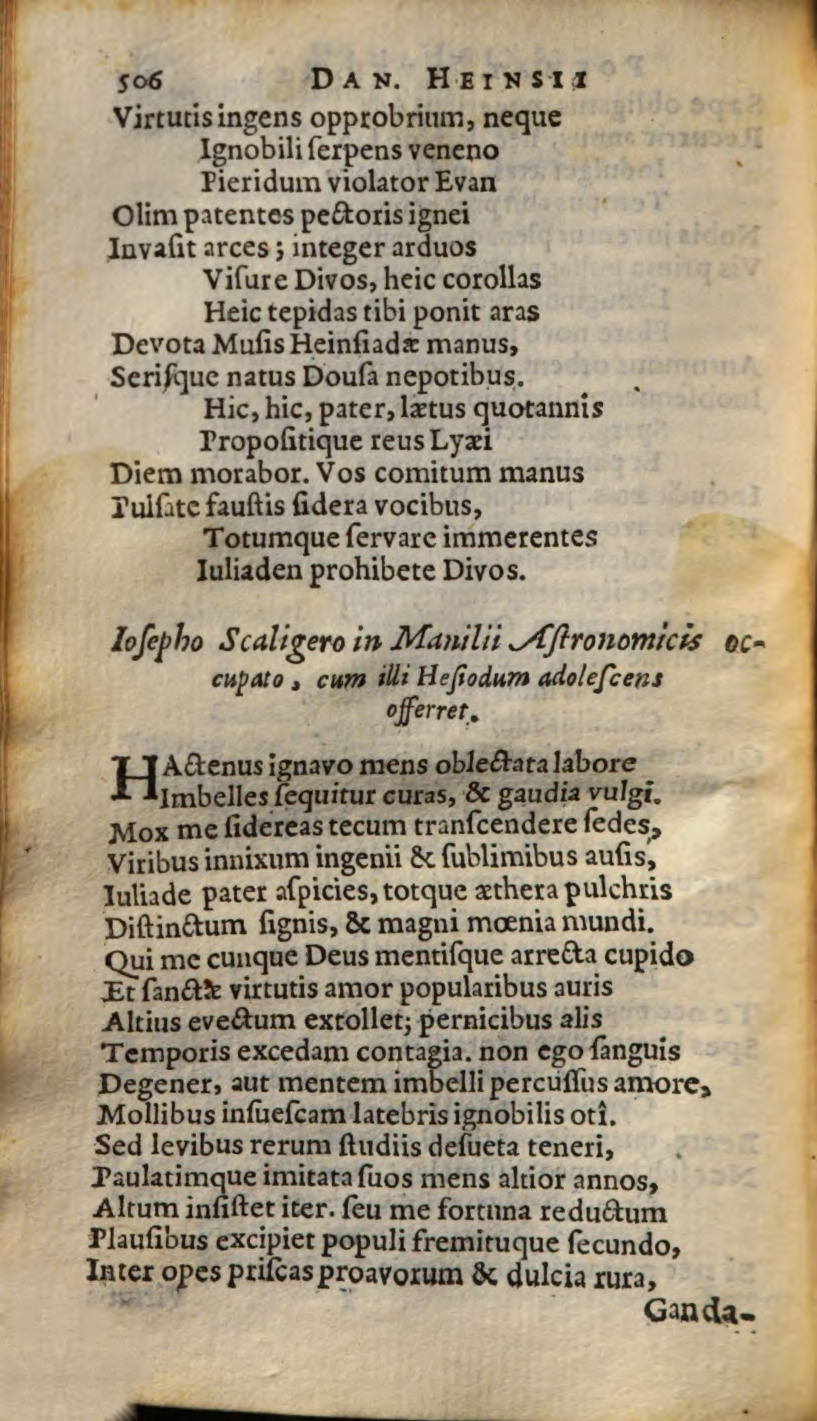 506 DAN. HEINSII
Virtutis ingens opprobrium, neque
Ignobili ſerpens veneno
Pieridum violator Evan
Olim patentes pectoris ignei
Invaſit arces; integer arduos
Viſure Divos, heic corollas
Heic tepidas tibi ponit aras
Devota Muſis Heinſiadæ manus,
Seriſque natus Douſa nepotibus.
Hic, hic, pater, lætus quotannis
Propoſitique reus Lyæi
Diem morabor. Vos comitum manus
Pulſate fauſtis ſidera vocibus,
Totumque ſervare immerentes
Iuliaden prohibete Divos.
Ioſepho Scaligero in Manilii Aſtronomicis oc-
cupato, cum illi Heſiodum adoleſcens
offerret.
HActenus ignavo mens oblectata labore
Imbelles ſequitur curas, & gaudia vulgi.
Mox me ſidereas tecum tranſcendere ſedes,
Viribus innixum ingenii & ſublimibus auſis,
Iuliade pater aſpicies, totque æthera pulchris
Diſtinctum ſignis, & magni mœnia mundi.
Qui me cunque Deus mentiſque arrecta cupido
Et ſanctæ virtutis amor popularibus auris
Altius evectum extollet; pernicibus alis
Temporis excedam contagia. non ego ſanguis
Degener, aut mentem imbelli percuſſus amore,
Mollibus inſueſcam latebris ignobilis otî.
Sed levibus rerum ſtudiis deſueta teneri,
Paulatimque imitata ſuos mens altior annos,
Altum inſiſtet iter. ſeu me fortuna reductum
Plauſibus excipiet populi fremituque ſecundo,
Inter opes priſcas proavorum & dulcia rura,
Ganda-